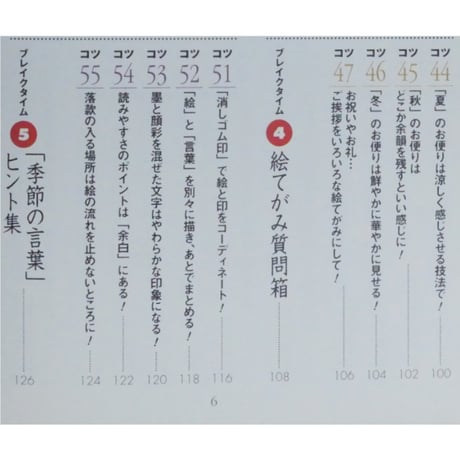 コツ44 「夏」のお便りは涼しく感じさせる技法で! 100
コツ45 「秋」のお便りは
どこか余韻を残すといい感じに! 102
コツ46 「冬」のお便りは鮮やかに華やかに見せる! 104
コツ47 お祝いやお礼…
ご挨拶をいろいろな絵てがみにして! 106
ブレイクタイム 4 絵てがみ質問箱 108
コツ51 「消しゴム印」で絵と印をコーディネート! 116
コツ52 「絵」と「言葉」を別々に描き、あとでまとめる! 118
コツ53 墨と顔彩を混ぜた文字はやわらかな印象になる! 120
コツ54 読みやすさのポイントは「余白」にある! 122
コツ55 落款の入る場所は絵の流れを止めないところに! 124
ブレイクタイム 5 「季節の言葉」
ヒント集 126
6